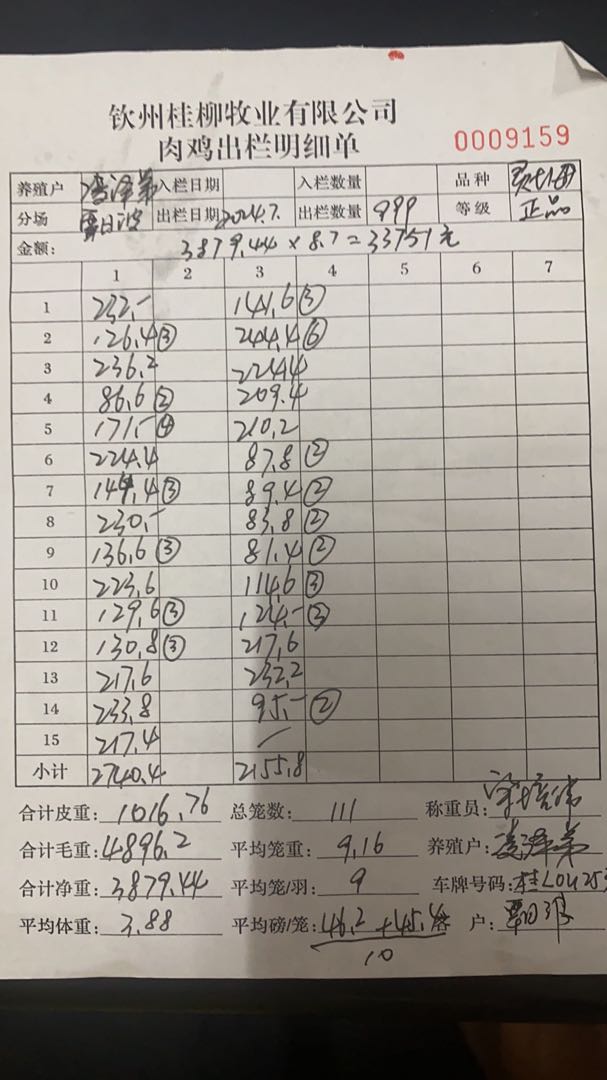 钦州桂柳牧业有限公司
肉鸡出栏明细单
0009159
养殖户 入栏日期 入栏数量 品种
分场 覃日波 出栏日期 2024.7. 出栏数量 999 等级 正品
金额: 3879.44 × 8.7 = 33751元
1 2 3 4 5 6 7
1 232.- 141.6 ③
2 126.4 ③ 244.4 ⑥
3 236.2 224.4
4 86.6 ② 209.4
5 171.- ④ 210.2
6 224.4 87.8 ②
7 144.4 ③ 89.4 ②
8 230.- 83.8 ②
9 136.6 ③ 81.4 ②
10 223.6 114.6 ③
11 129.6 ③ 124.- ③
12 130.8 ③ 217.6
13 217.6 232.2
14 233.8 95.- ②
15 217.4 /
小计 2740.4 2155.8
合计皮重: 1016.76 总笼数: 111 称重员:
合计毛重: 4896.2 平均笼重: 9.16 养殖户:
合计净重: 3879.44 平均笼/羽: 9 车牌号码: 桂L0U25
平均体重: 3.88 平均磅/笼: 46.2 + 45.4 户:
10